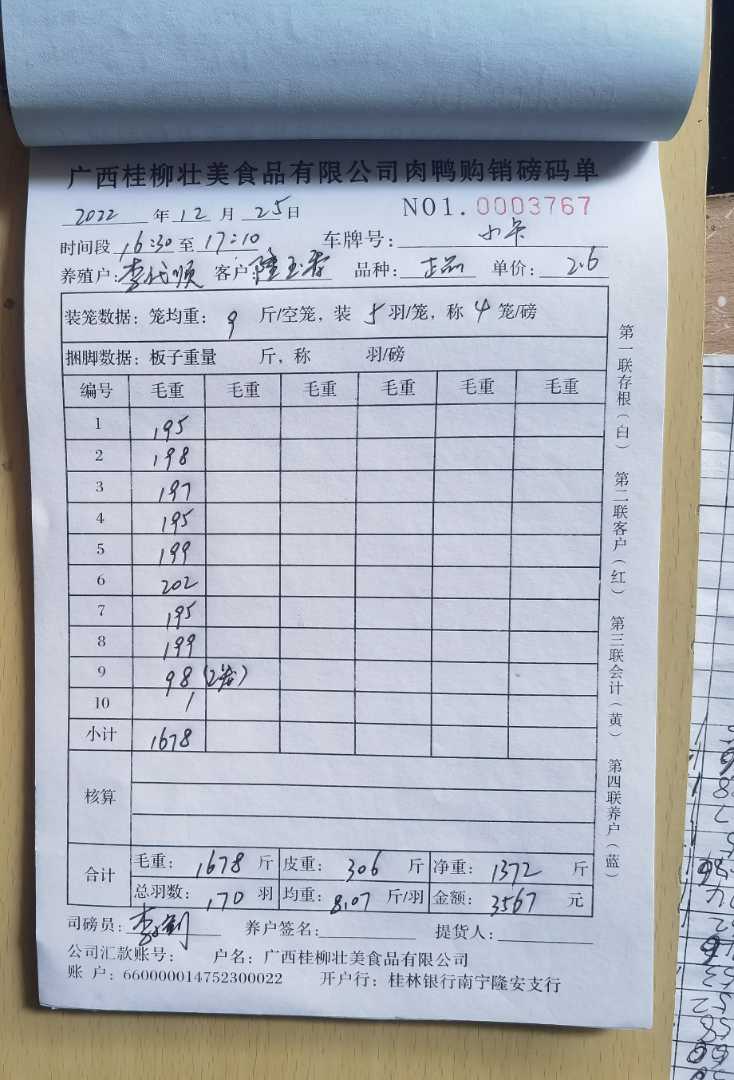 广西桂柳壮美食品有限公司肉鸭购销磅码单
2022 年 12 月 25 日 NO1. 0003767
时间段 16:30 至 17:10 车牌号: 小卡
养殖户: 李代顺 客户: 隆玉香 品种: 正品 单价: 2.6
装笼数据: 笼均重: 9 斤/空笼, 装 5 羽/笼, 称 4 笼/磅
捆脚数据: 板子重量 斤, 称 羽/磅
编号 毛重 毛重 毛重 毛重 毛重 毛重
1 195
2 198
3 197
4 195
5 199
6 202
7 195
8 199
9 98 (2笼)
10 /
小计 1678
核算
合计 毛重: 1678 斤 皮重: 306 斤 净重: 1372 斤
总羽数: 170 羽 均重: 8.07 斤/羽 金额: 3567 元
司磅员: 养户签名: 提货人:
公司汇款账号: 户名: 广西桂柳壮美食品有限公司
账 户: 660000014752300022 开户行: 桂林银行南宁隆安支行
第一联存根(白) 第二联客户(红) 第三联会计(黄) 第四联养户(蓝)